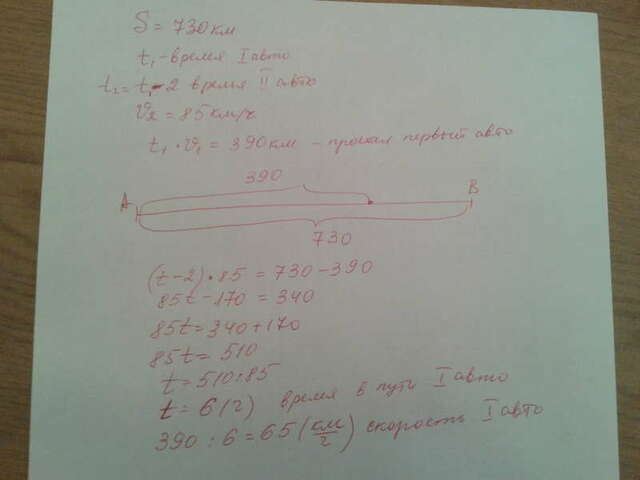 S = 730 км
t₁ - время I авто
t₂ = t₁ - 2 время II авто
V₂ = 85 км/ч
t₁ · V₁ = 390 км - проехал первый авто
390
A B
730
(t - 2) · 85 = 730 - 390
85t - 170 = 340
85t = 340 + 170
85t = 510
t = 510 : 85
t = 6 (ч) время в пути I авто
390 : 6 = 65 (км/ч) скорость I авто